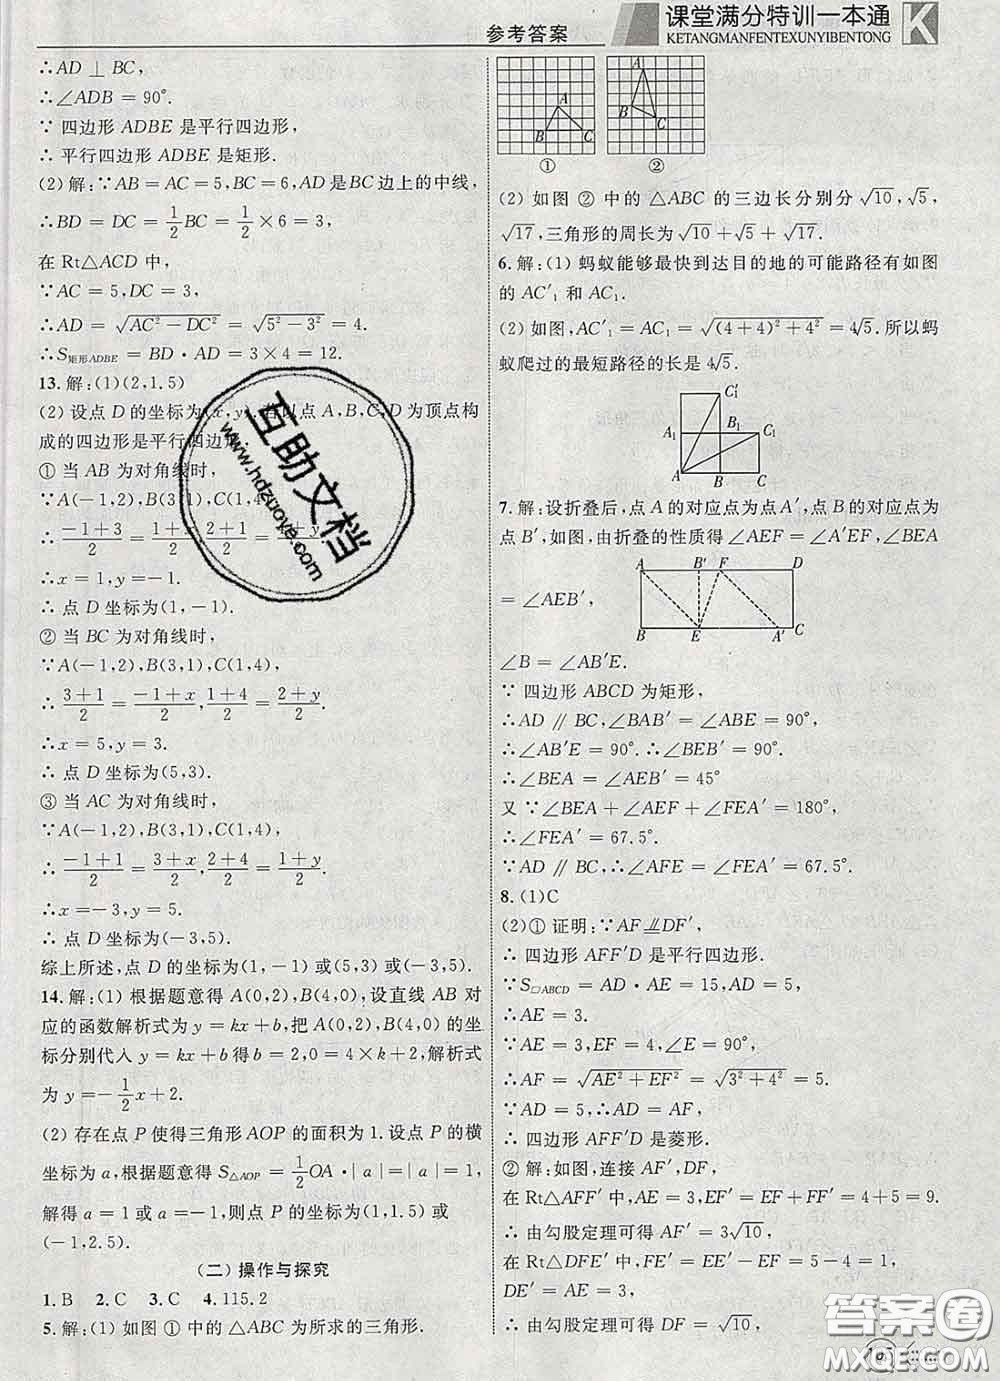 参考答案
课堂满分特训一本通
KETANGMANFENTEXUNYIBENTONG
K
∴AD⊥BC,
∴∠ADB=90°.
∵四边形ADBE是平行四边形,
∴平行四边形ADBE是矩形.
(2)解:∵AB=AC=5,BC=6,AD是BC边上的中线,
∴BD=DC=1/2BC=1/2×6=3,
在Rt△ACD中,
∵AC=5,DC=3,
∴AD=√(AC²-DC²)=√(5²-3²)=4.
∴S矩形ADBE=BD·AD=3×4=12.
13.解:(1)(2,1.5)
(2)设点D的坐标为(x,y).若以点A,B,C,D为顶点构
成的四边形是平行四边形.
①当AB为对角线时,
∵A(-1,2),B(3,1),C(1,4),
∴(-1+3)/2=(1+x)/2,(2+1)/2=(4+y)/2.
∴x=1,y=-1.
∴点D坐标为(1,-1).
②当BC为对角线时,
∵A(-1,2),B(3,1),C(1,4),
∴(3+1)/2=(-1+x)/2,(1+4)/2=(2+y)/2.
∴x=5,y=3.
∴点D坐标为(5,3).
③当AC为对角线时,
∵A(-1,2),B(3,1),C(1,4),
∴(-1+1)/2=(3+x)/2,(2+4)/2=(1+y)/2.
∴x=-3,y=5.
∴点D坐标为(-3,5).
综上所述,点D的坐标为(1,-1)或(5,3)或(-3,5).
14.解:(1)根据题意得A(0,2),B(4,0),设直线AB对
应的函数解析式为y=kx+b,把A(0,2),B(4,0)的坐
标分别代入y=kx+b得b=2,0=4×k+2,解析式
为y=-1/2x+2.
(2)存在点P使得三角形AOP的面积为1.设点P的横
坐标为a,根据题意得S△AOP=1/2OA·|a|=|a|=1,
解得a=1或a=-1,则点P的坐标为(1,1.5)或
(-1,2.5).
(二)操作与探究
1.B 2.C 3.C 4.115.2
5.解:(1)如图①中的△ABC为所求的三角形.
A B C
①
A B C
②
(2)如图②中的△ABC的三边长分别分√10,√5,
√17,三角形的周长为√10+√5+√17.
6.解:(1)蚂蚁能够最快到达目的地的可能路径有如图
的AC′₁和AC₁.
(2)如图,AC′₁=AC₁=√((4+4)²+4²)=4√5.所以蚂
蚁爬过的最短路径的长是4√5.
C′₁
A₁ B₁ C₁
A B C
7.解:设折叠后,点A的对应点为点A′,点B的对应点为
点B′,如图,由折叠的性质得∠AEF=∠A′EF,∠BEA
A B′ F D
=∠AEB′,
B E A′ C
∠B=∠AB′E.
∵四边形ABCD为矩形,
∴AD∥BC,∠BAB′=∠ABE=90°,
∴∠AB′E=90°.∴∠BEB′=90°.
∴∠BEA=∠AEB′=45°
又∵∠BEA+∠AEF+∠FEA′=180°,
∴∠FEA′=67.5°.
∵AD∥BC,∴∠AFE=∠FEA′=67.5°.
8.(1)C
(2)①证明:∵AF⫽DF′,
∴四边形AFF′D是平行四边形.
∵S□ABCD=AD·AE=15,AD=5,
∴AE=3.
∵AE=3,EF=4,∠E=90°,
∴AF=√(AE²+EF²)=√(3²+4²)=5.
∵AD=5,∴AD=AF,
∴四边形AFF′D是菱形.
②解:如图,连接AF′,DF,
在Rt△AFF′中,AE=3,EF′=EF+FF′=4+5=9.
∴由勾股定理可得AF′=3√10.
在Rt△DFE′中,FE′=EE′-EF=5-4=1,
DE′=AE=3,
∴由勾股定理可得DF=√10,
互助文档
www.hdzuoye.com
答案圈
MXQE.COM